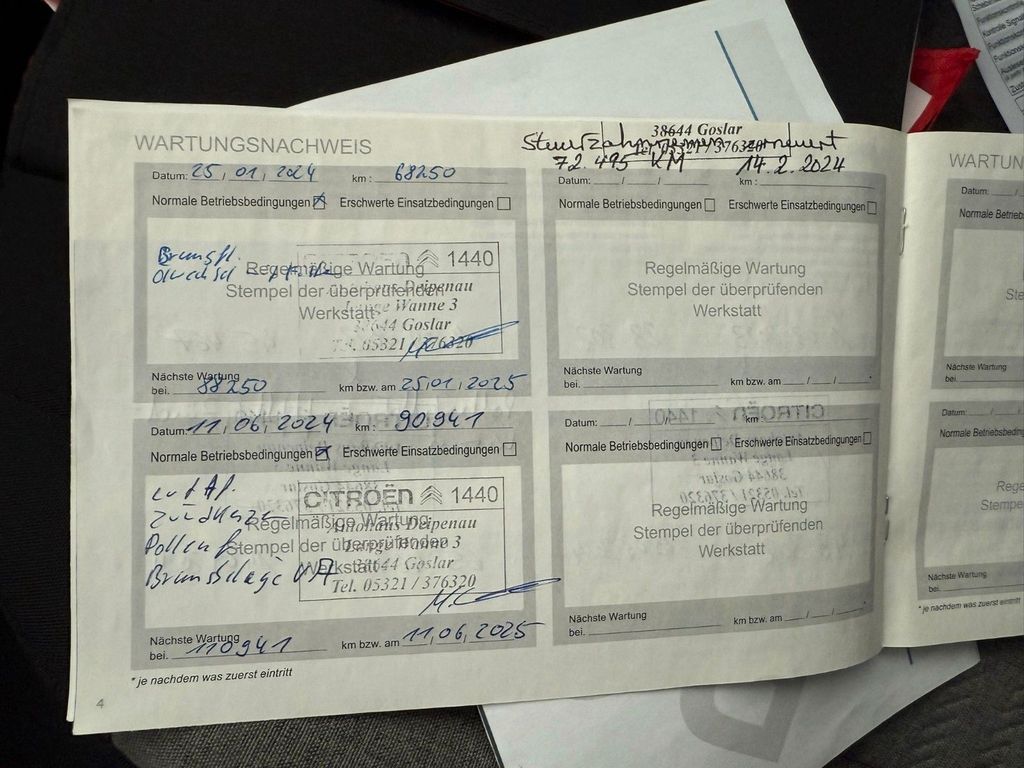 WARTUNGSNACHWEIS
Datum: 25, 01, 2024 km: 68250
Normale Betriebsbedingungen Erschwerte Einsatzbedingungen
Bremsfl.
1440
Regelmäßige Wartung
Stempel der überprüfenden
Werkstatt
Deipenau
Lange Wanne 3
38644 Goslar
Tel. 05321 / 376320
Nächste Wartung
bei. 88250 km bzw. am 25,01,2025
Datum: 11, 06, 2024 km: 90941
Normale Betriebsbedingungen Erschwerte Einsatzbedingungen
CITROËN 1440
Zündkerze
Regelmäßige Wartung
Autohaus Deipenau
Pollenf
Stempel der überprüfenden
Lange Wanne 3
Werkstatt
38644 Goslar
Bremsbeläge VA
Tel. 05321 / 376320
Nächste Wartung
bei. 110941 km bzw. am 11,06,2025
* je nachdem was zuerst eintritt
4
38644 Goslar
Steuerzahnriemen erneuert
Tel. 05321 / 376320
72.495 KM 14.2.2024
Datum: __/__/__ km:
Normale Betriebsbedingungen Erschwerte Einsatzbedingungen
Regelmäßige Wartung
Stempel der überprüfenden
Werkstatt
Nächste Wartung
bei. km bzw. am __/__/__
Datum: __/__/__ km:
Normale Betriebsbedingungen Erschwerte Einsatzbedingungen
Regelmäßige Wartung
Stempel der überprüfenden
Werkstatt
Nächste Wartung
bei. km bzw. am __/__/__
WARTUN
Datum:
Normale Betriebsbe
Ste
Nächste Wartung
bei.
Datum:
Normale Betriebsbedin
Rege
Stempel
Nächste Wartung
bei.
* je nachdem was zuerst eintritt